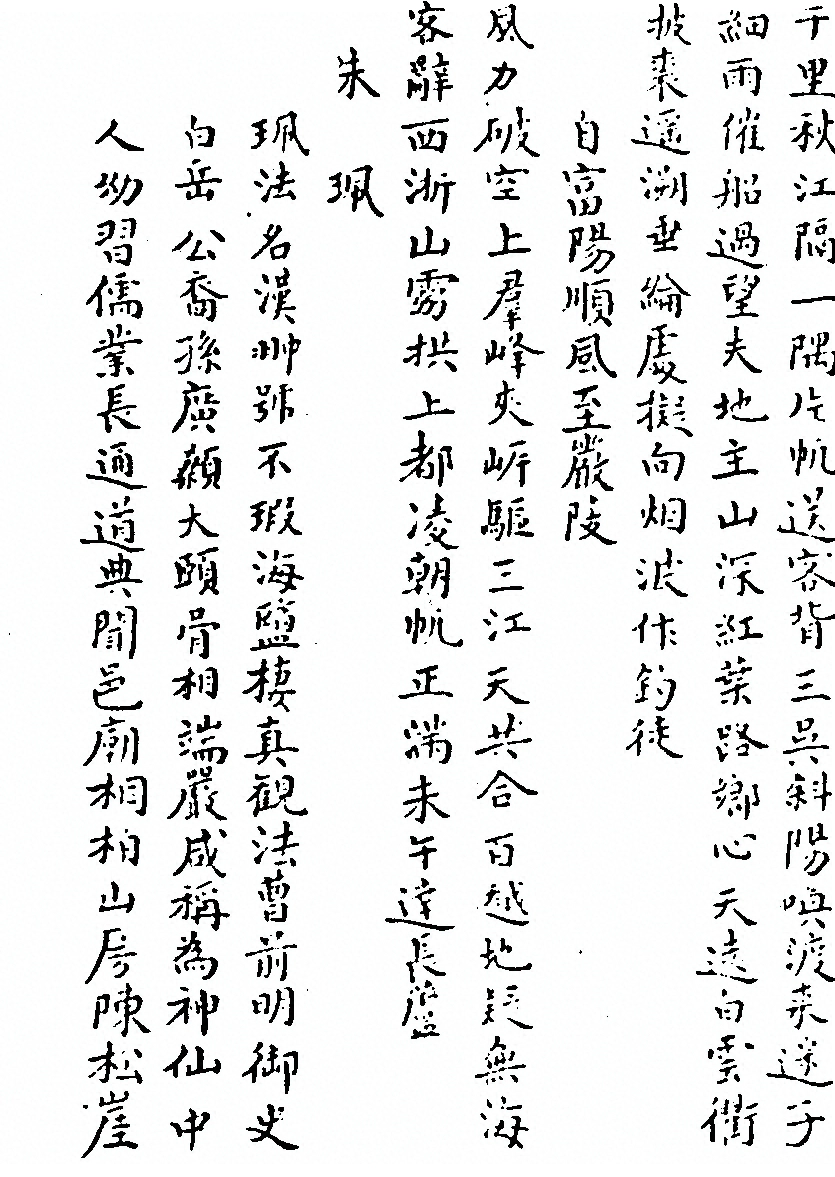 千里秋江隔一隅片帆送客背三吳斜陽喚渡來遊子
細雨催船過望夫地主山深紅葉路鄉心天遠白雲衢
披裘遥溯垂綸處擬向烟波作釣徒
自富陽順風至嚴陵
風力破空上羣峰夾岸驅三江天共合百越地疑無海
客辭西浙山雲拱上都凌朝帆正滿未午達長蘆
朱珮
珮法名漢翀號不瑕海鹽棲真觀法曹前明御史
白岳公裔孫廣顙大頤骨相端嚴咸稱為神仙中
人幼習儒業長通道典聞邑廟相柏山房陳松崖